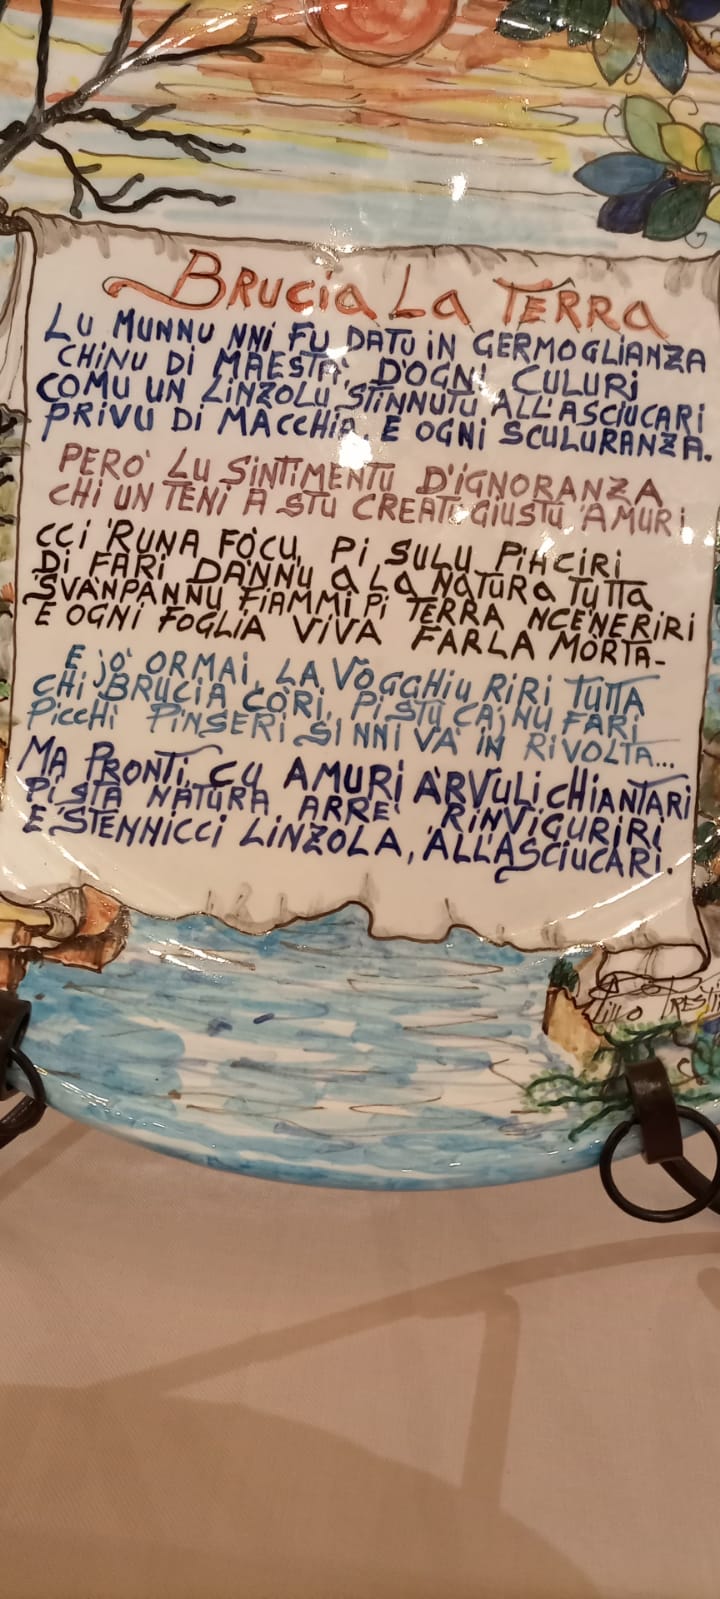 BRUCIA LA TERRA
LU MUNNU NNI FU DATU IN GERMOGLIANZA
CHINU DI MAESTÀ, D'OGNI CULURI
COMU UN LINZOLU STINNUTU ALL'ASCIUCARI
PRIVU DI MACCHIA, E OGNI SCULURANZA.
PERO' LU SINTIMENTU D'IGNORANZA
CHI UN TENI A STU CREATU GIUSTU AMURI
CCI RUNA FOCU, PI SULU PIHCIRI
DI FARI DANNU A LA NATURA TUTTA
SVANPANNU FIAMMI PI TERRA NCENERIRI
E OGNI FOGLIA VIVA FARLA MORTA-
E JO' ORMAI, LA VOGGHIU RIRI TUTTA
CHI BRUCIA CORI, PI STU CAJNU FARI
PICCHI PINSERI SI NNI VA IN RIVOLTA...
MA PRONTI, CU AMURI ARVULI CHIANTARI
PI STA NATURA ARRE' RINVIGURIRI
E STENNICCI LINZOLA, ALL'ASCIUCARI.